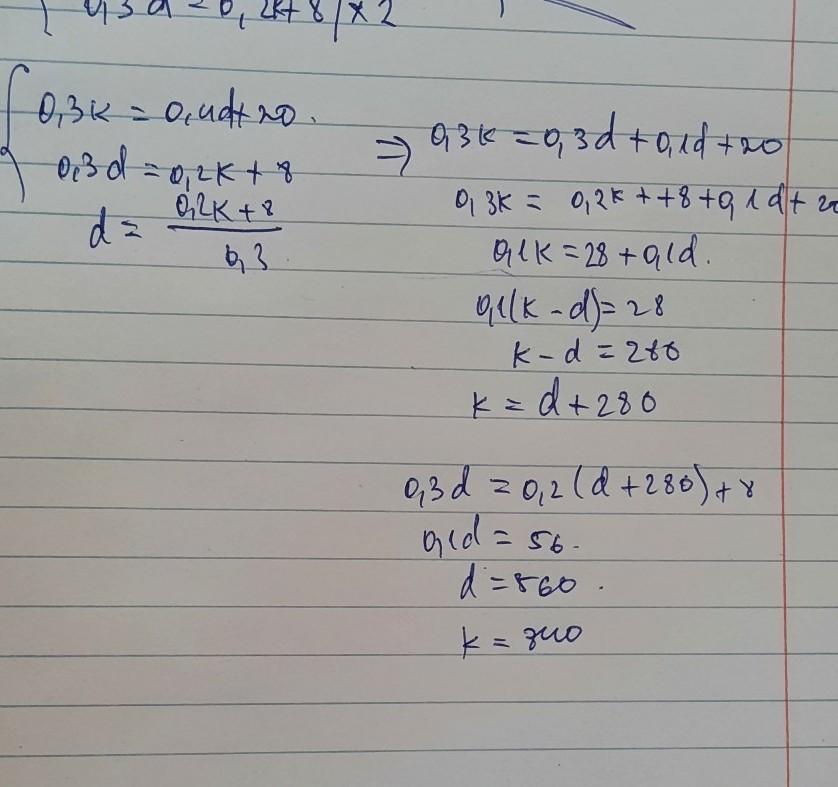 0,3d = 0,2k+8 /x2
0,3k = 0,4d+20.
0,3d = 0,2k + 8
d = \frac{0,2k+8}{0,3}
⇒ 0,3k = 0,3d + 0,1d + 20
0,3k = 0,2k + +8 + 0,1d + 20
0,1k = 28 + 0,1d.
0,1(k - d) = 28
k - d = 280
k = d + 280
0,3d = 0,2(d + 280) + 8
0,1d = 56.
d = 560.
k = 840